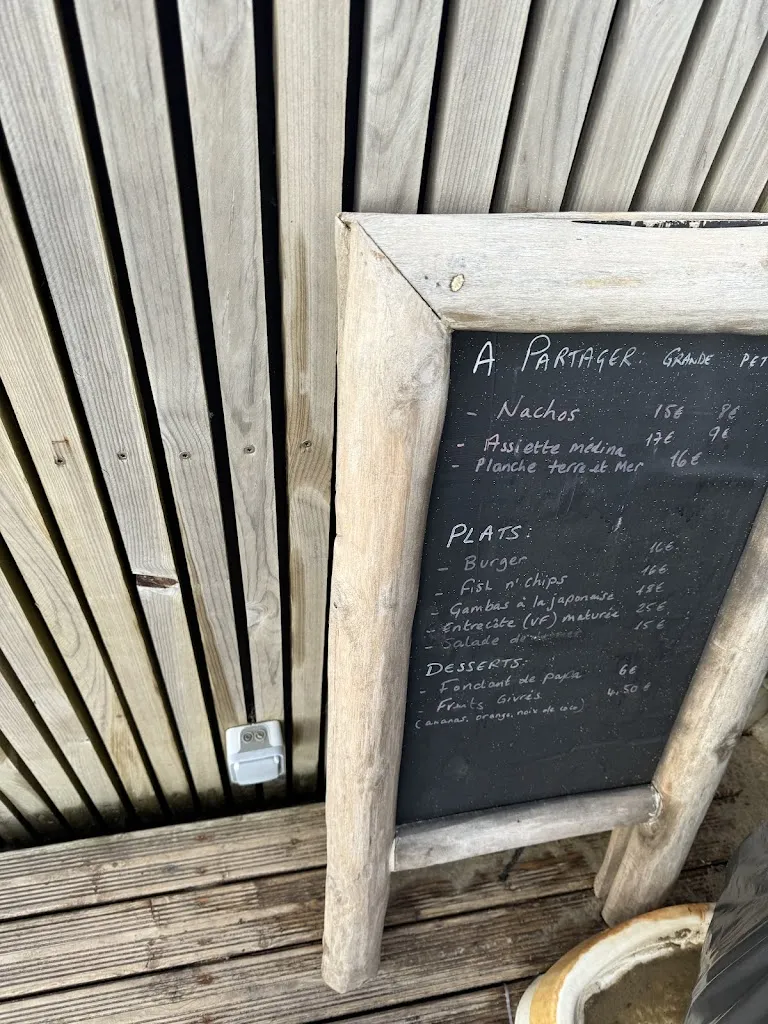 A PARTAGER: GRANDE PET
- Nachos 15€ 8€
- Assiette médina 17€ 9€
- Planche terre et Mer 16€
PLATS:
- Burger 16€
- Fish n' chips 16€
- Gambas à la japonaise 18€
- Entrecôte (VF) maturée 25€
- Salade 15€
DESSERTS:
- Fondant de papa 6€
- Fruits Givrés 4,50€
(ananas, orange, noix de coco)